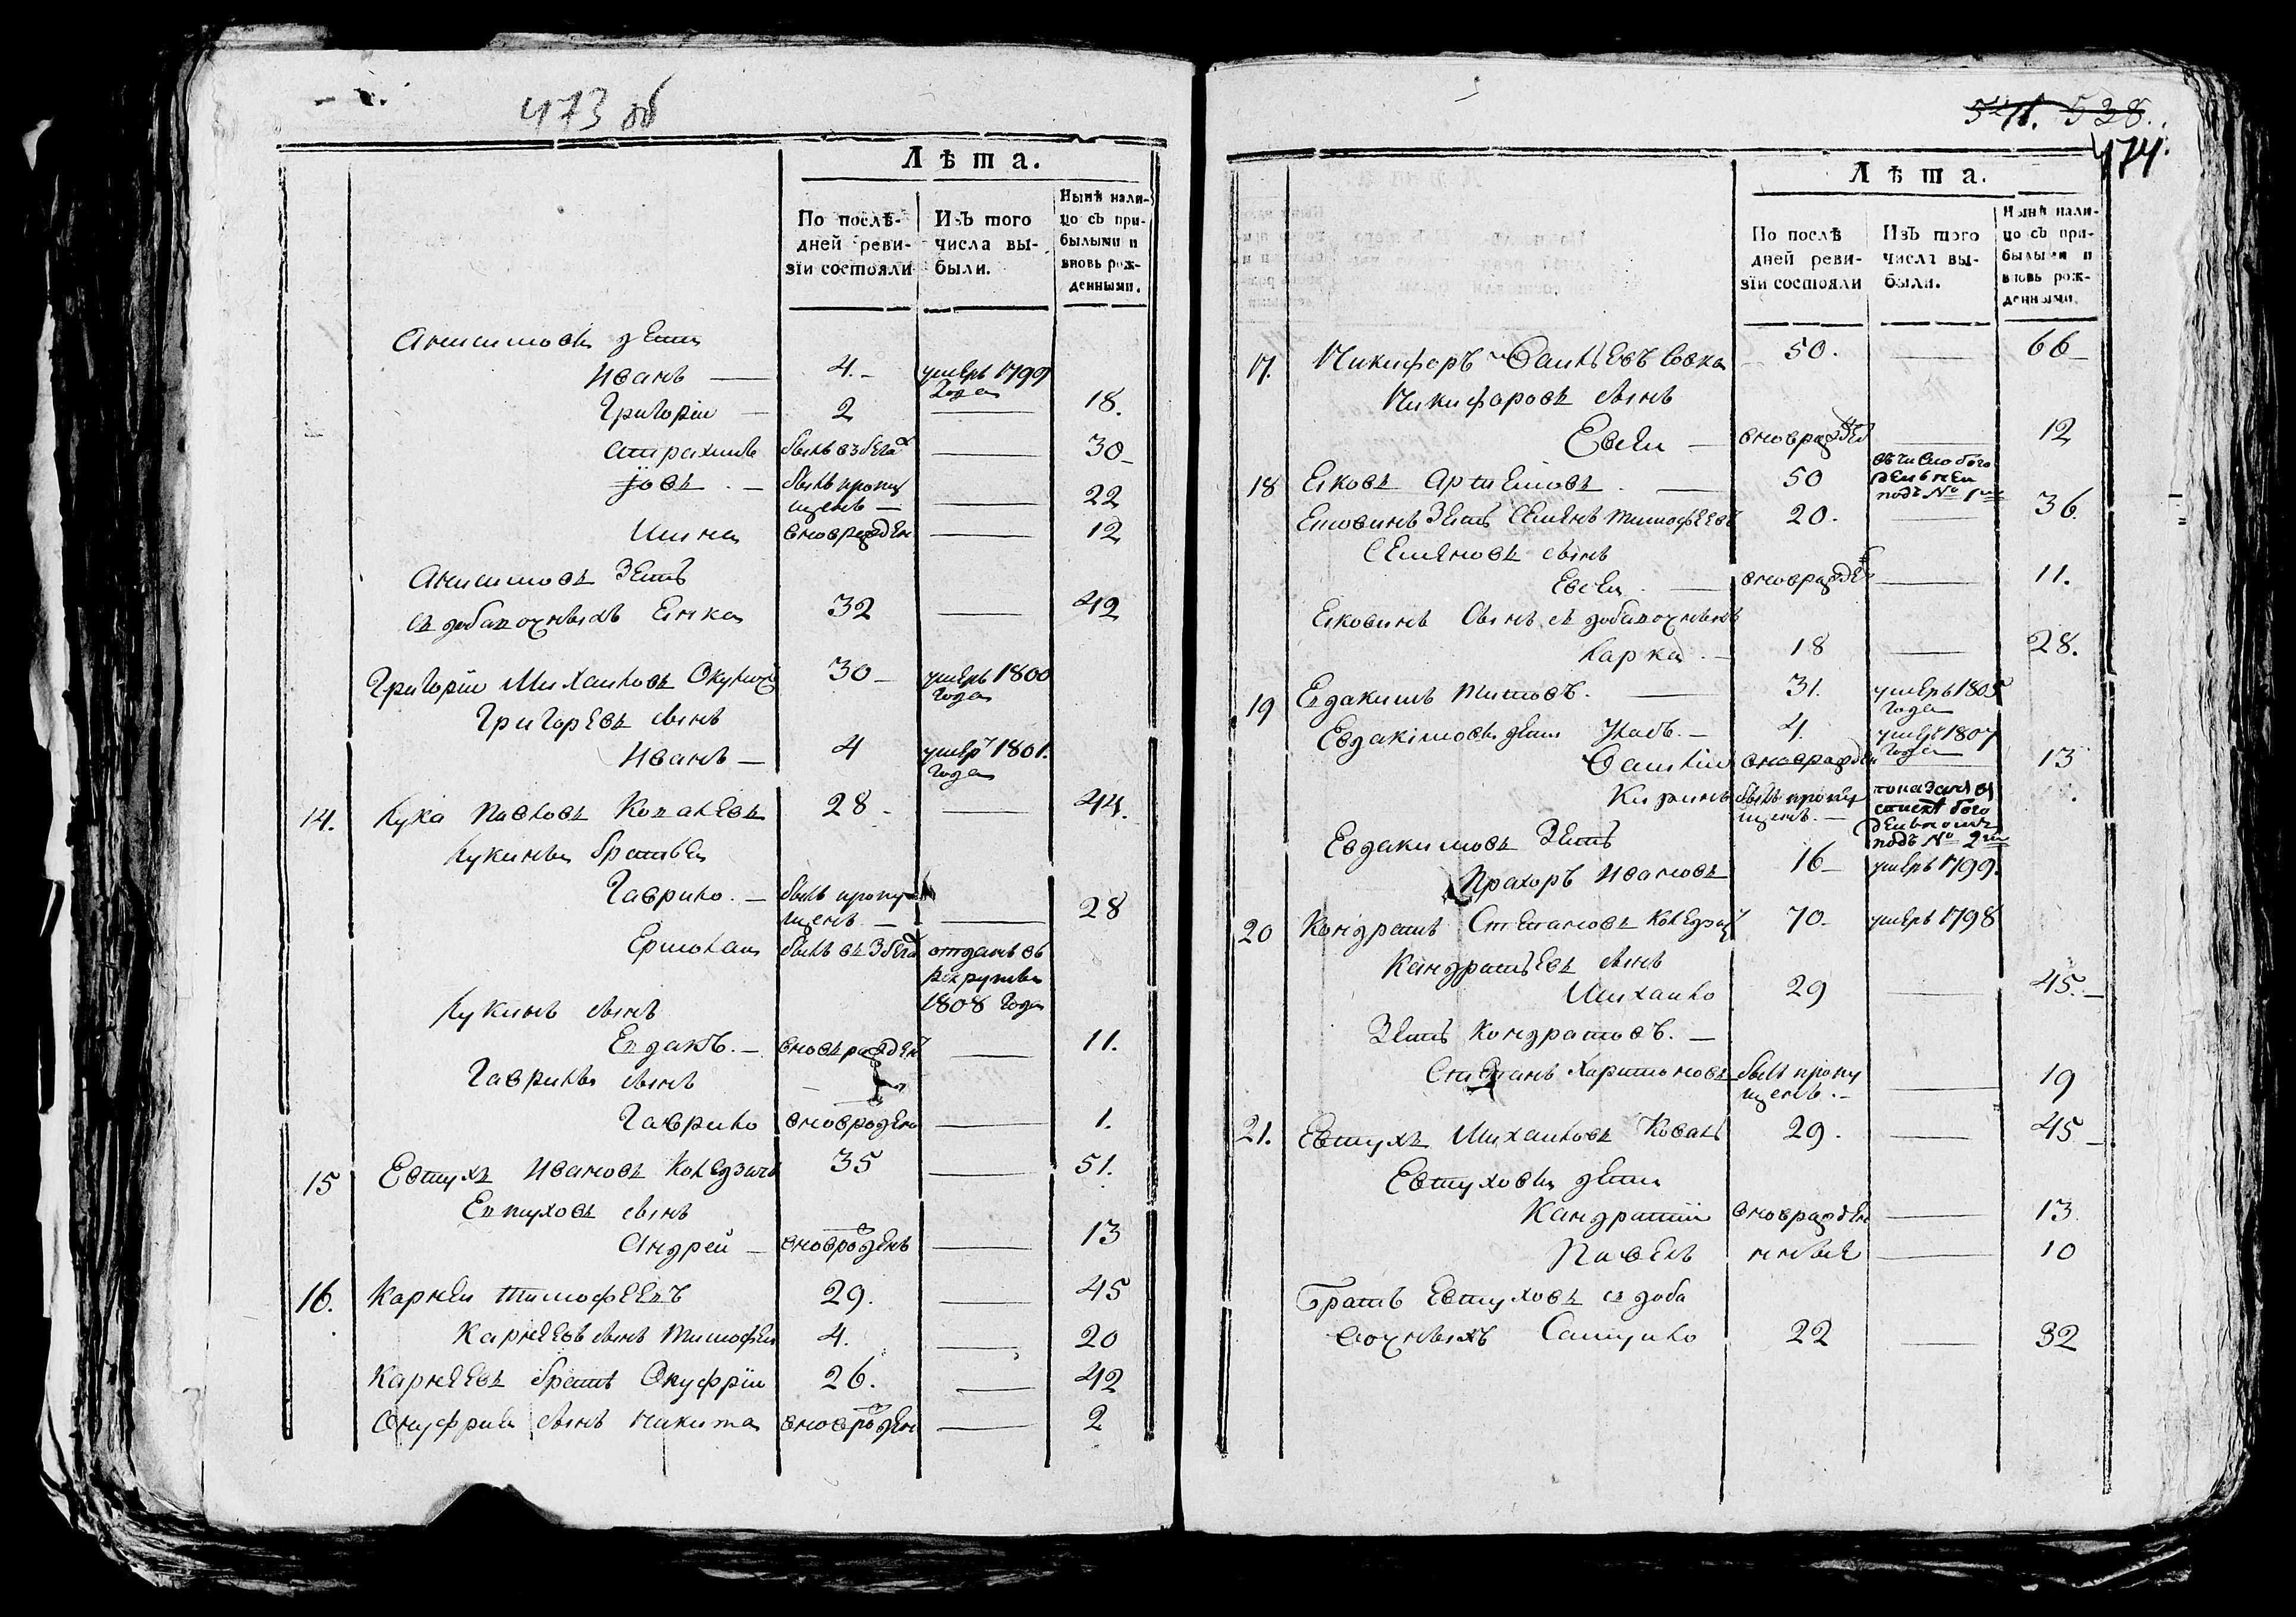 473 об
Лѣта.
По послѣ-
дней реви-
зіи состояли
Изъ того
числа вы-
были.
Нынѣ нали-
цо съ при-
былыми и
вновь рож-
денными.
Анисимовы дети
Иванъ — 4. умеръ 1799 года
Григорій — 2 — 18.
былъ взбега — 30
Іовъ — былъ пропущенъ — 22
вновъ рожденъ — 12
Анисимовъ зеть
32 — 42
Григорій Михаиловъ 30 умеръ 1800 года
Григоревъ сынъ
Иванъ — 4 умеръ 1801. года
14. Лука Павловъ 28 — 44.
Лукины братья
Гаврило. — былъ пропущенъ — 28
Ермолаи былъ въ збега отданъ въ рекруты 1808 года
Лукинъ сынъ
вновъ рожденъ — 11.
Гаврилы сынъ
Гаврило вновъ рожденъ — 1.
15 Евтухъ Ивановъ 35 — 51.
Евтуховъ сынъ
Андрей — вновъ рожденъ — 13
16. Карнеи Тимофеевъ 29. — 45
Карнеевъ сынъ Тимофеи 4. — 20
Карнеевъ братъ Онуфріи 26. — 42
Онуфрия сынъ Никита вновъ рожденъ — 2
541. 528.
474.
Лѣта.
По послѣ
дней реви-
зіи состояли
Изъ того
числа вы-
были.
Нынѣ нали-
цо съ при-
былыми и
вновь рож-
денными.
17. Никифоръ 50. — 66
Никифоровъ сынъ
Евсеи — вновъ рожденъ — 12
18 50 въ число богоделенеи подъ № 1мъ
зеть Семенъ Тимофеевъ 20. — 36.
Семеновъ сынъ
Евсеи — вновъ рожденъ — 11.
сынъ
Карка — 18 — 28.
19 Евдакимъ Титовъ. — 31. умеръ 1805 года
Евдакімовы дети 4. умеръ 1807 года
вновъ рожденъ — 13
былъ пропущенъ — показанъ въ богоделеномъ подъ № 2мъ
Евдакимовъ зеть
Прахоръ Ивановъ 16 — умеръ 1799.
20 Кондратъ Степановъ 70 — умеръ 1798
Кандратьевъ сынъ
Михаило 29 — 45.
Зеть Кондратовъ. —
Степанъ Харитоновъ былъ пропущенъ. — 19
21. Евтухъ Михаиловъ Коваль 29. — 45
Евтуховы дети
Кандратіи вновъ рожденъ — 13
Павелъ — 10
Братъ Евтуховъ
22 — 32